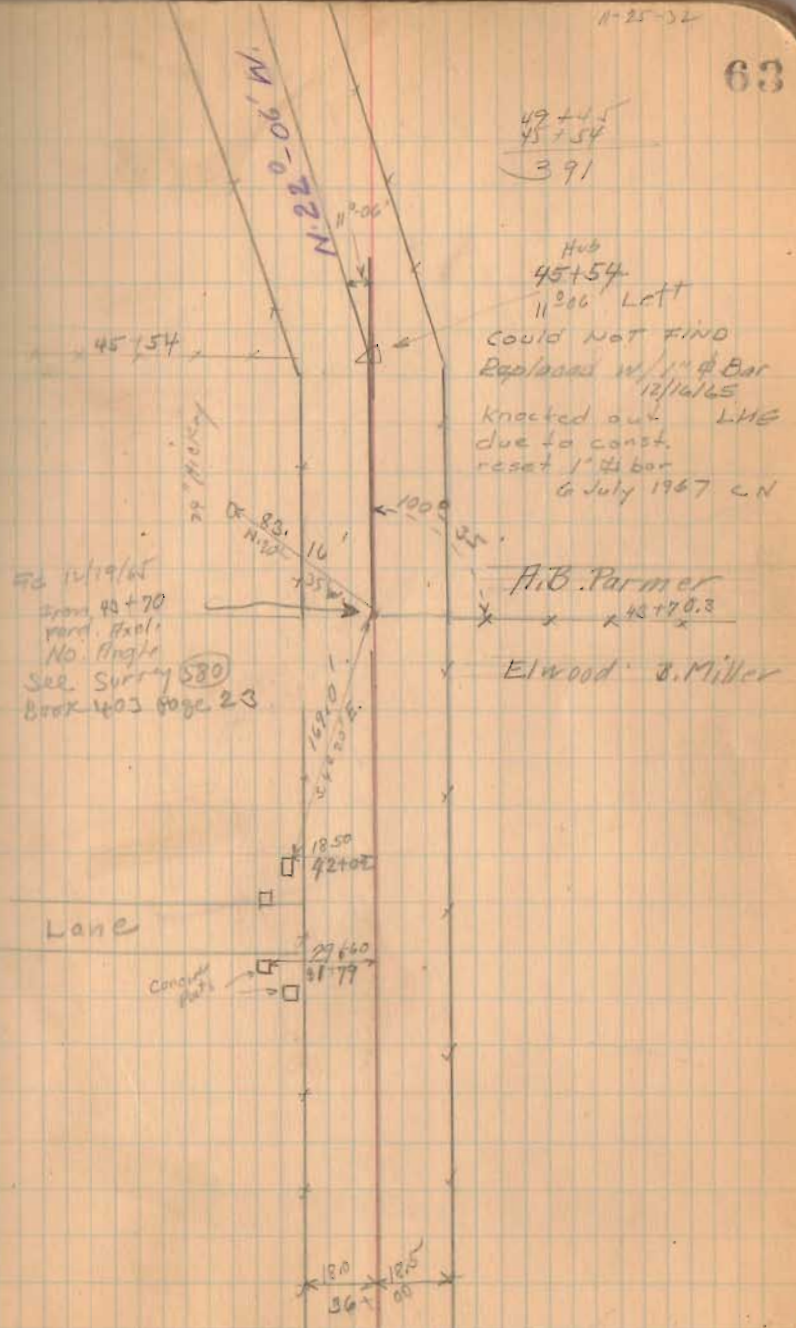 11-25-32
63
N. 22°-06' W.
11°-06'
49+45
45+54
391
Hub
45+54
11°06' Left
COULD NOT FIND
Replaced w/ 1" ⌀ Bar
12/16/65
Knocked out LHE
due to const.
reset 1" bar
6 July 1967 CN
45+54
29" Hickory
83.16'
N.20°
+35
100
35
A.B. Parmer
43+70.3
Elwood B. Miller
12/19/65
Iron 43+70
No Angle
See Survey 580
Book 403 page 23
169.01
20' E.
18.50
42+02
Lane
29.60
41+79
Concrete
Posts
18.0
18.5
36+00